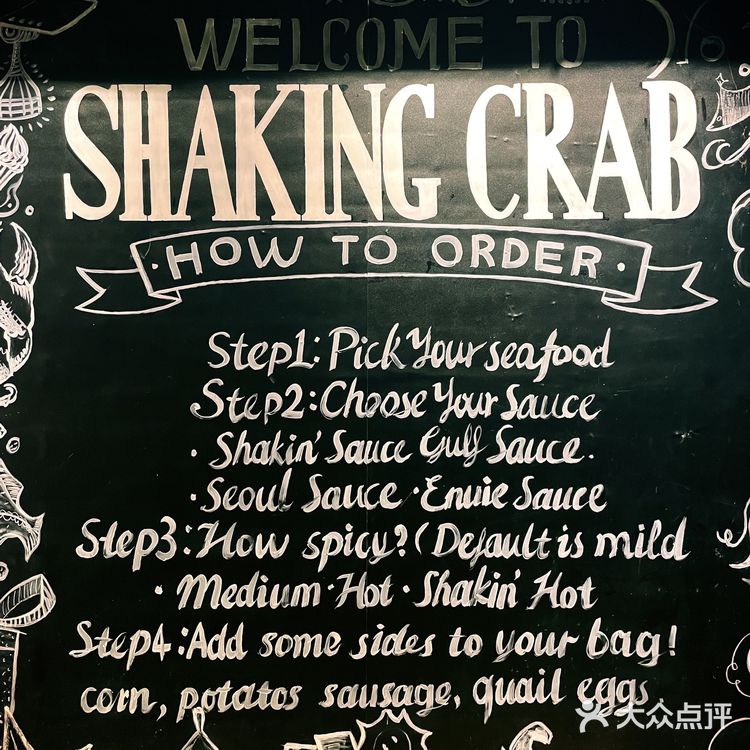 WELCOME TO
SHAKING CRAB
·HOW TO ORDER·
Step1: Pick Your seafood
Step2: Choose Your Sauce
· Shakin' Sauce Gulf Sauce.
· Seoul Sauce · Envie Sauce
Step3: How spicy? (Default is mild
· Medium · Hot · Shakin' Hot
Step4: Add some sides to your bag!
corn, potatos sausage, quail eggs
大众点评